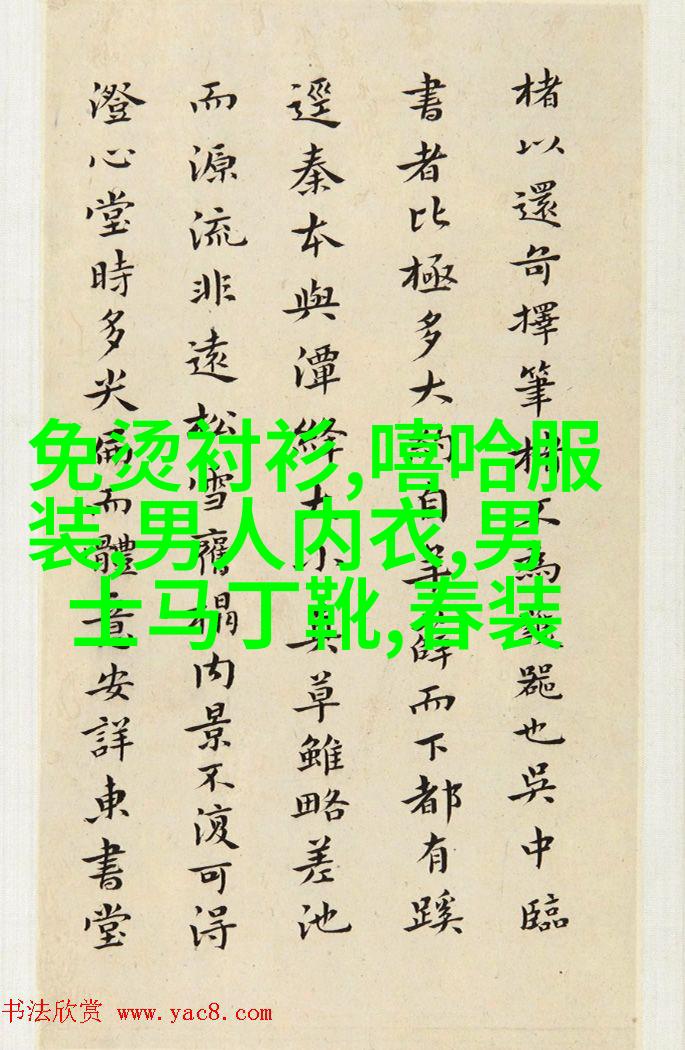 楮以還奇擇筆
不為
器也吳中臨
書者比極多大約自
而下都有蹊
逕秦本與潭絳
草雖略差池
而源流非遠松雪舊榻內景不復可得
澄心堂時多尖
而體意安詳東書堂
免烫衬衫,嘻哈服
装,男人内衣,男
士马丁靴,春装
书法欣赏 www.yac8.com